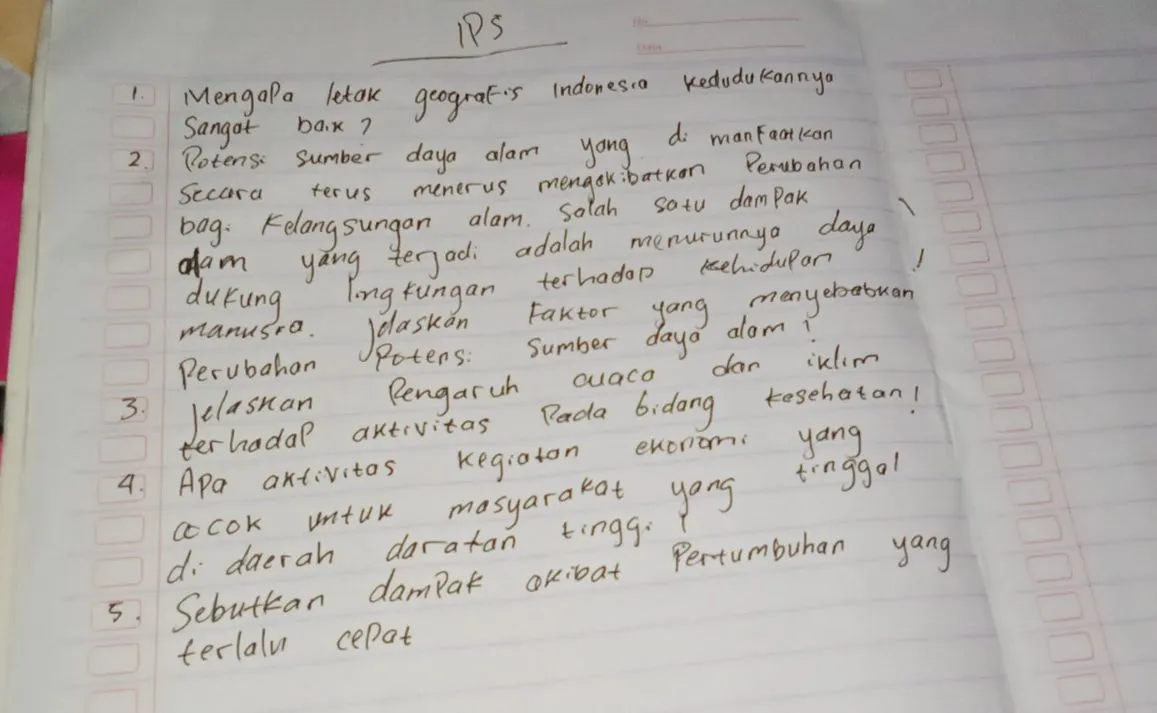 IPS
1. Mengapa letak geografis Indonesia kedudukannya
Sangat baik ?
2. Potensi Sumber daya alam yang di manfaatkan
Secara terus menerus mengakibatkan Perubahan
bagi Kelangsungan alam. Salah satu dampak
alam yang terjadi adalah menurunnya daya
dukung lingkungan terhadap kehidupan
manusia. Jelaskan Faktor yang menyebabkan
Perubahan Potensi Sumber daya alam !
3. Jelaskan Pengaruh cuaca dan iklim
terhadap aktivitas Pada bidang kesehatan !
4. Apa aktivitas kegiatan ekonomi yang
cocok untuk masyarakat yang tinggal
di daerah daratan tinggi !
5. Sebutkan dampak akibat Pertumbuhan yang
terlalu cepat